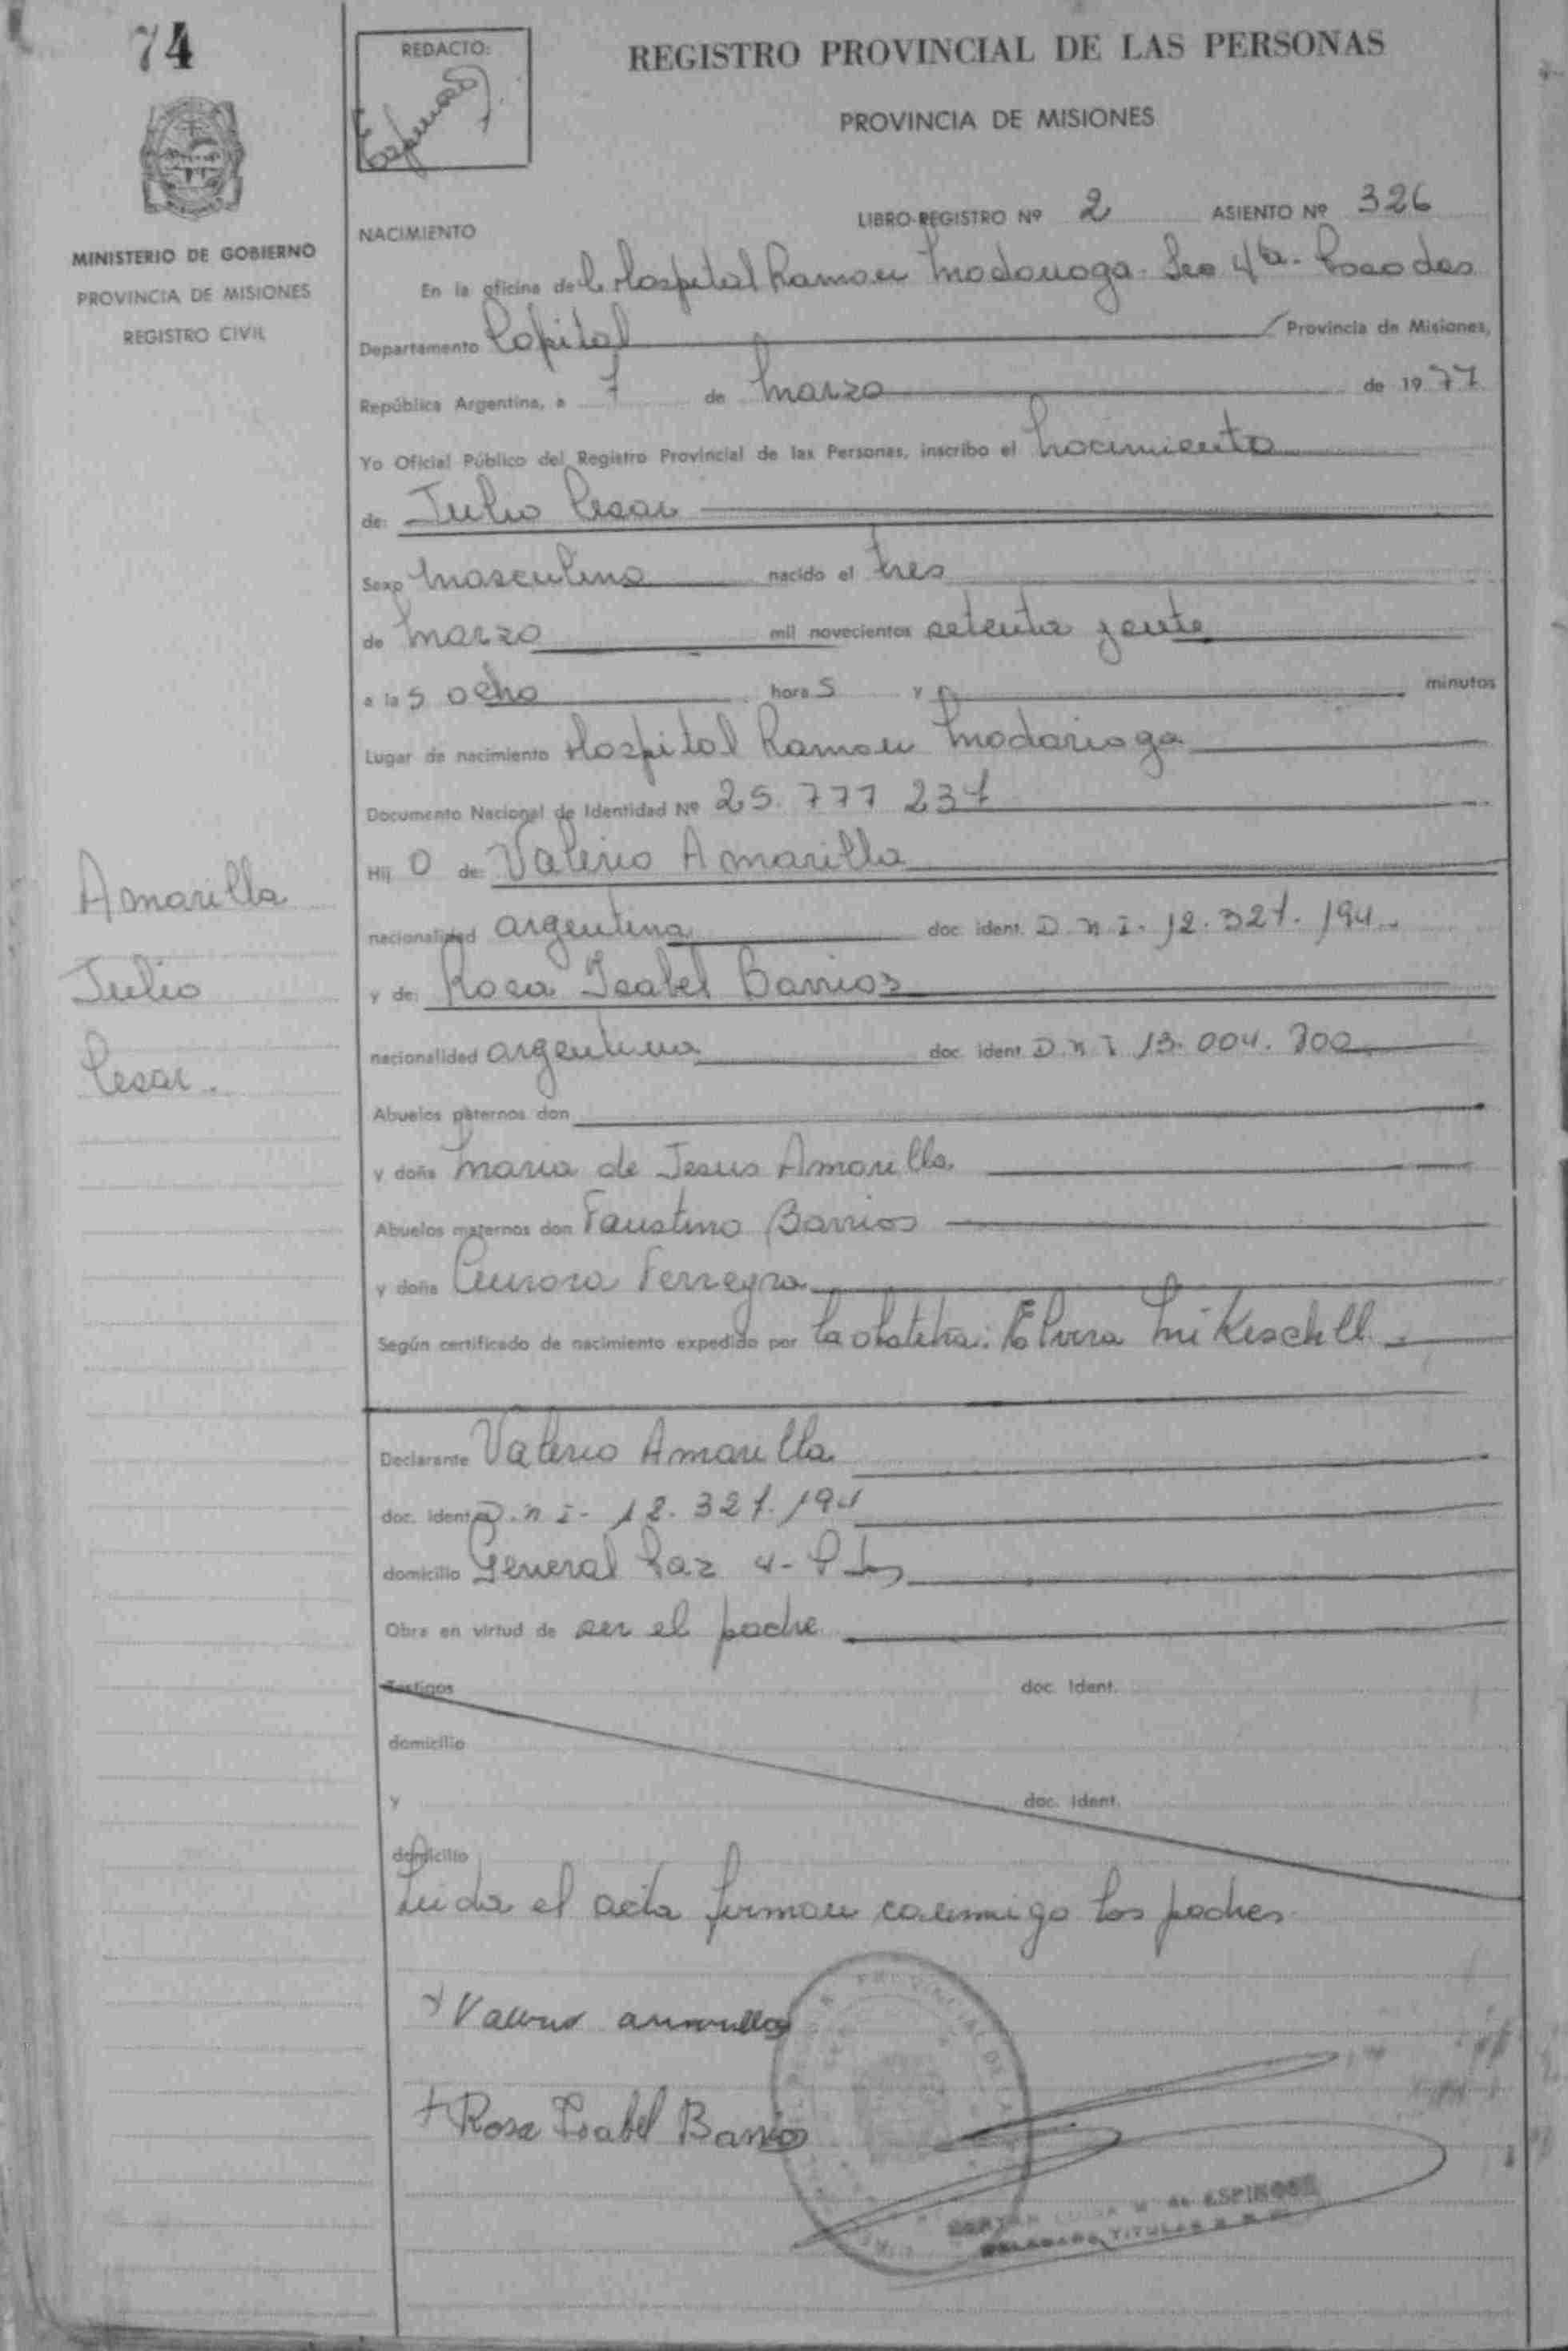 74
REDACTO:
REGISTRO PROVINCIAL DE LAS PERSONAS
PROVINCIA DE MISIONES
MINISTERIO DE GOBIERNO
PROVINCIA DE MISIONES
REGISTRO CIVIL
NACIMIENTO LIBRO-REGISTRO Nº 2 ASIENTO Nº 326
En la oficina del Hospital Ramon Madariaga. Sec 4ta. Posadas
Departamento Capital Provincia de Misiones,
República Argentina, a 7 de Marzo de 1977
Yo Oficial Público del Registro Provincial de las Personas, inscribo el nacimiento
de: Julio Cesar
Sexo masculino nacido el tres
de marzo mil novecientos setenta y siete
a las ocho horas y minutos
Lugar de nacimiento Hospital Ramon Madariaga
Documento Nacional de Identidad Nº 25.777 237
Hijo de: Valerio Amarilla
nacionalidad argentina doc. ident. D.n.i. 12.327.194
y de: Rosa Isabel Barrios
nacionalidad argentina doc. ident. D.n.i 13.004.700
Abuelos paternos don
y doña Maria de Jesus Amarilla
Abuelos maternos don Faustino Barrios
y doña Aurora Ferreyra
Según certificado de nacimiento expedido por la obstetra: Elvira Mikeschell
Amarilla
Julio
Cesar.
Declarante Valerio Amarilla
doc. ident. D.n.i- 12.327.194
domicilio General Paz 4- Pdas
Obra en virtud de ser el padre
Testigos doc. Ident.
domicilio
y doc. Ident.
domicilio
Leida el acta firman conmigo los padres
Valerio amarilla
Rosa Isabel Barrios
de ESPINOSA
DELEGADA TITULAR